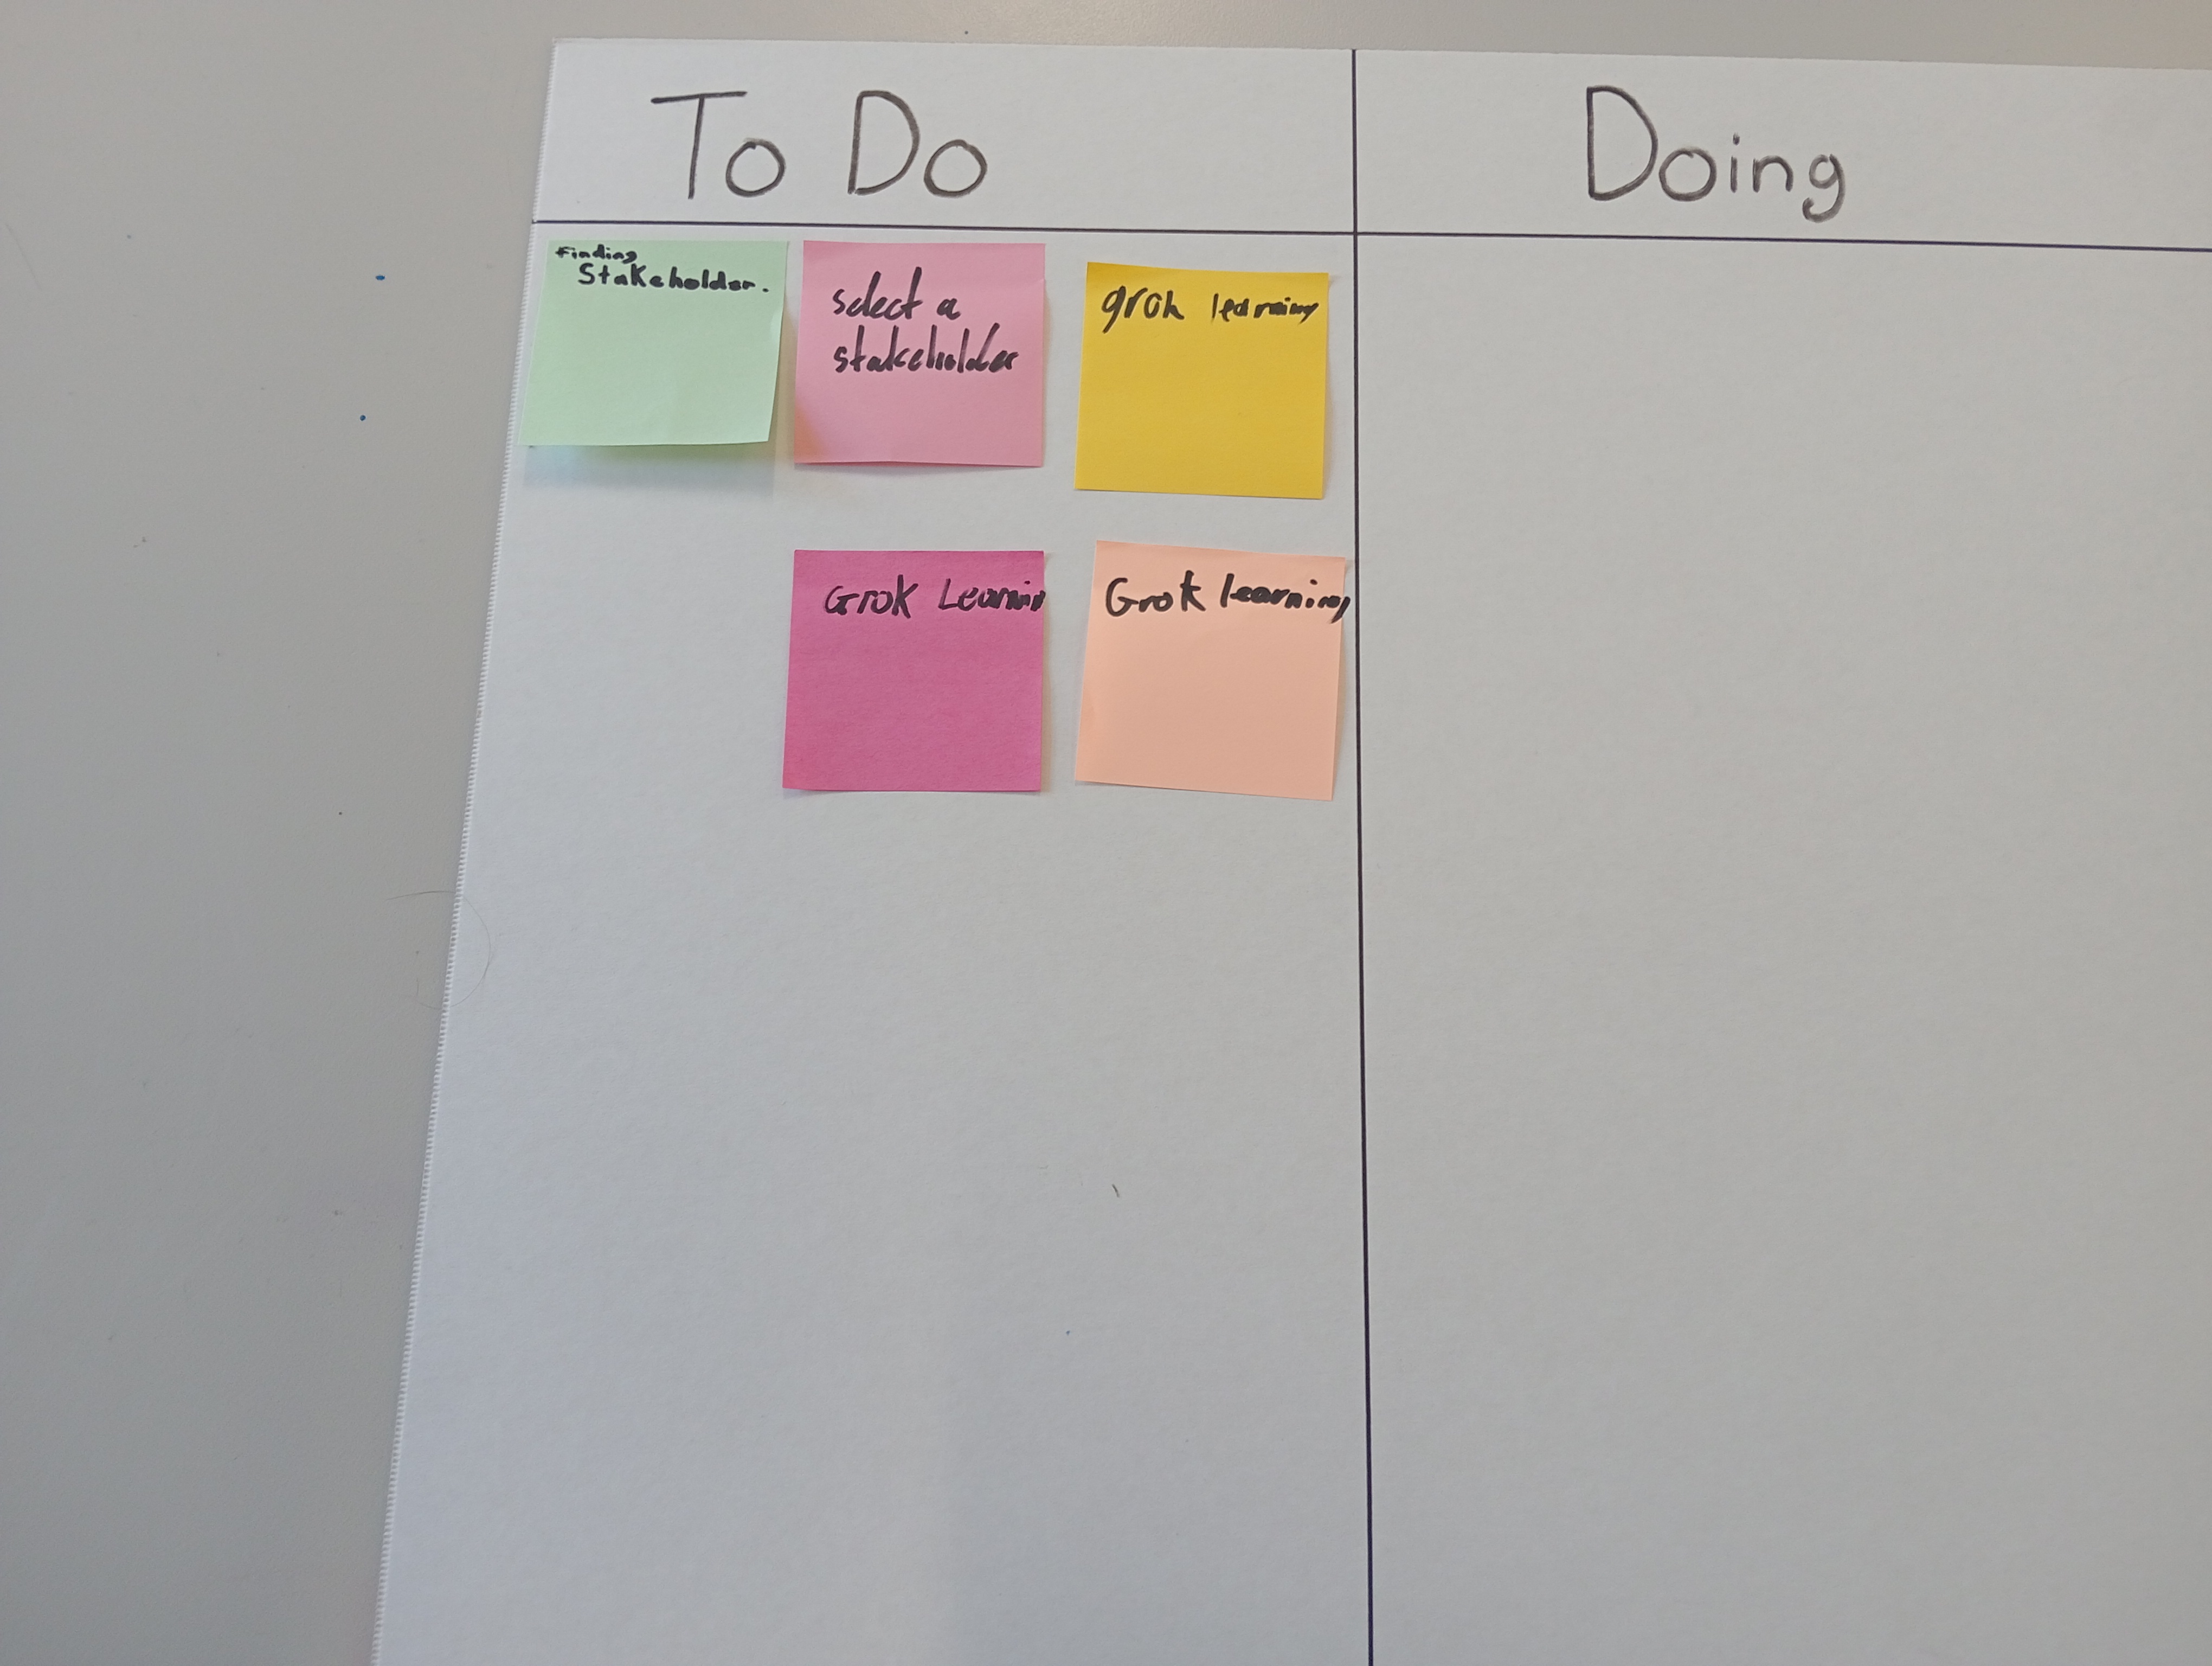 To Do
Doing
Finding
Stakeholder.
select a
stakeholder
grok learning
Grok Learnin
Grok learning